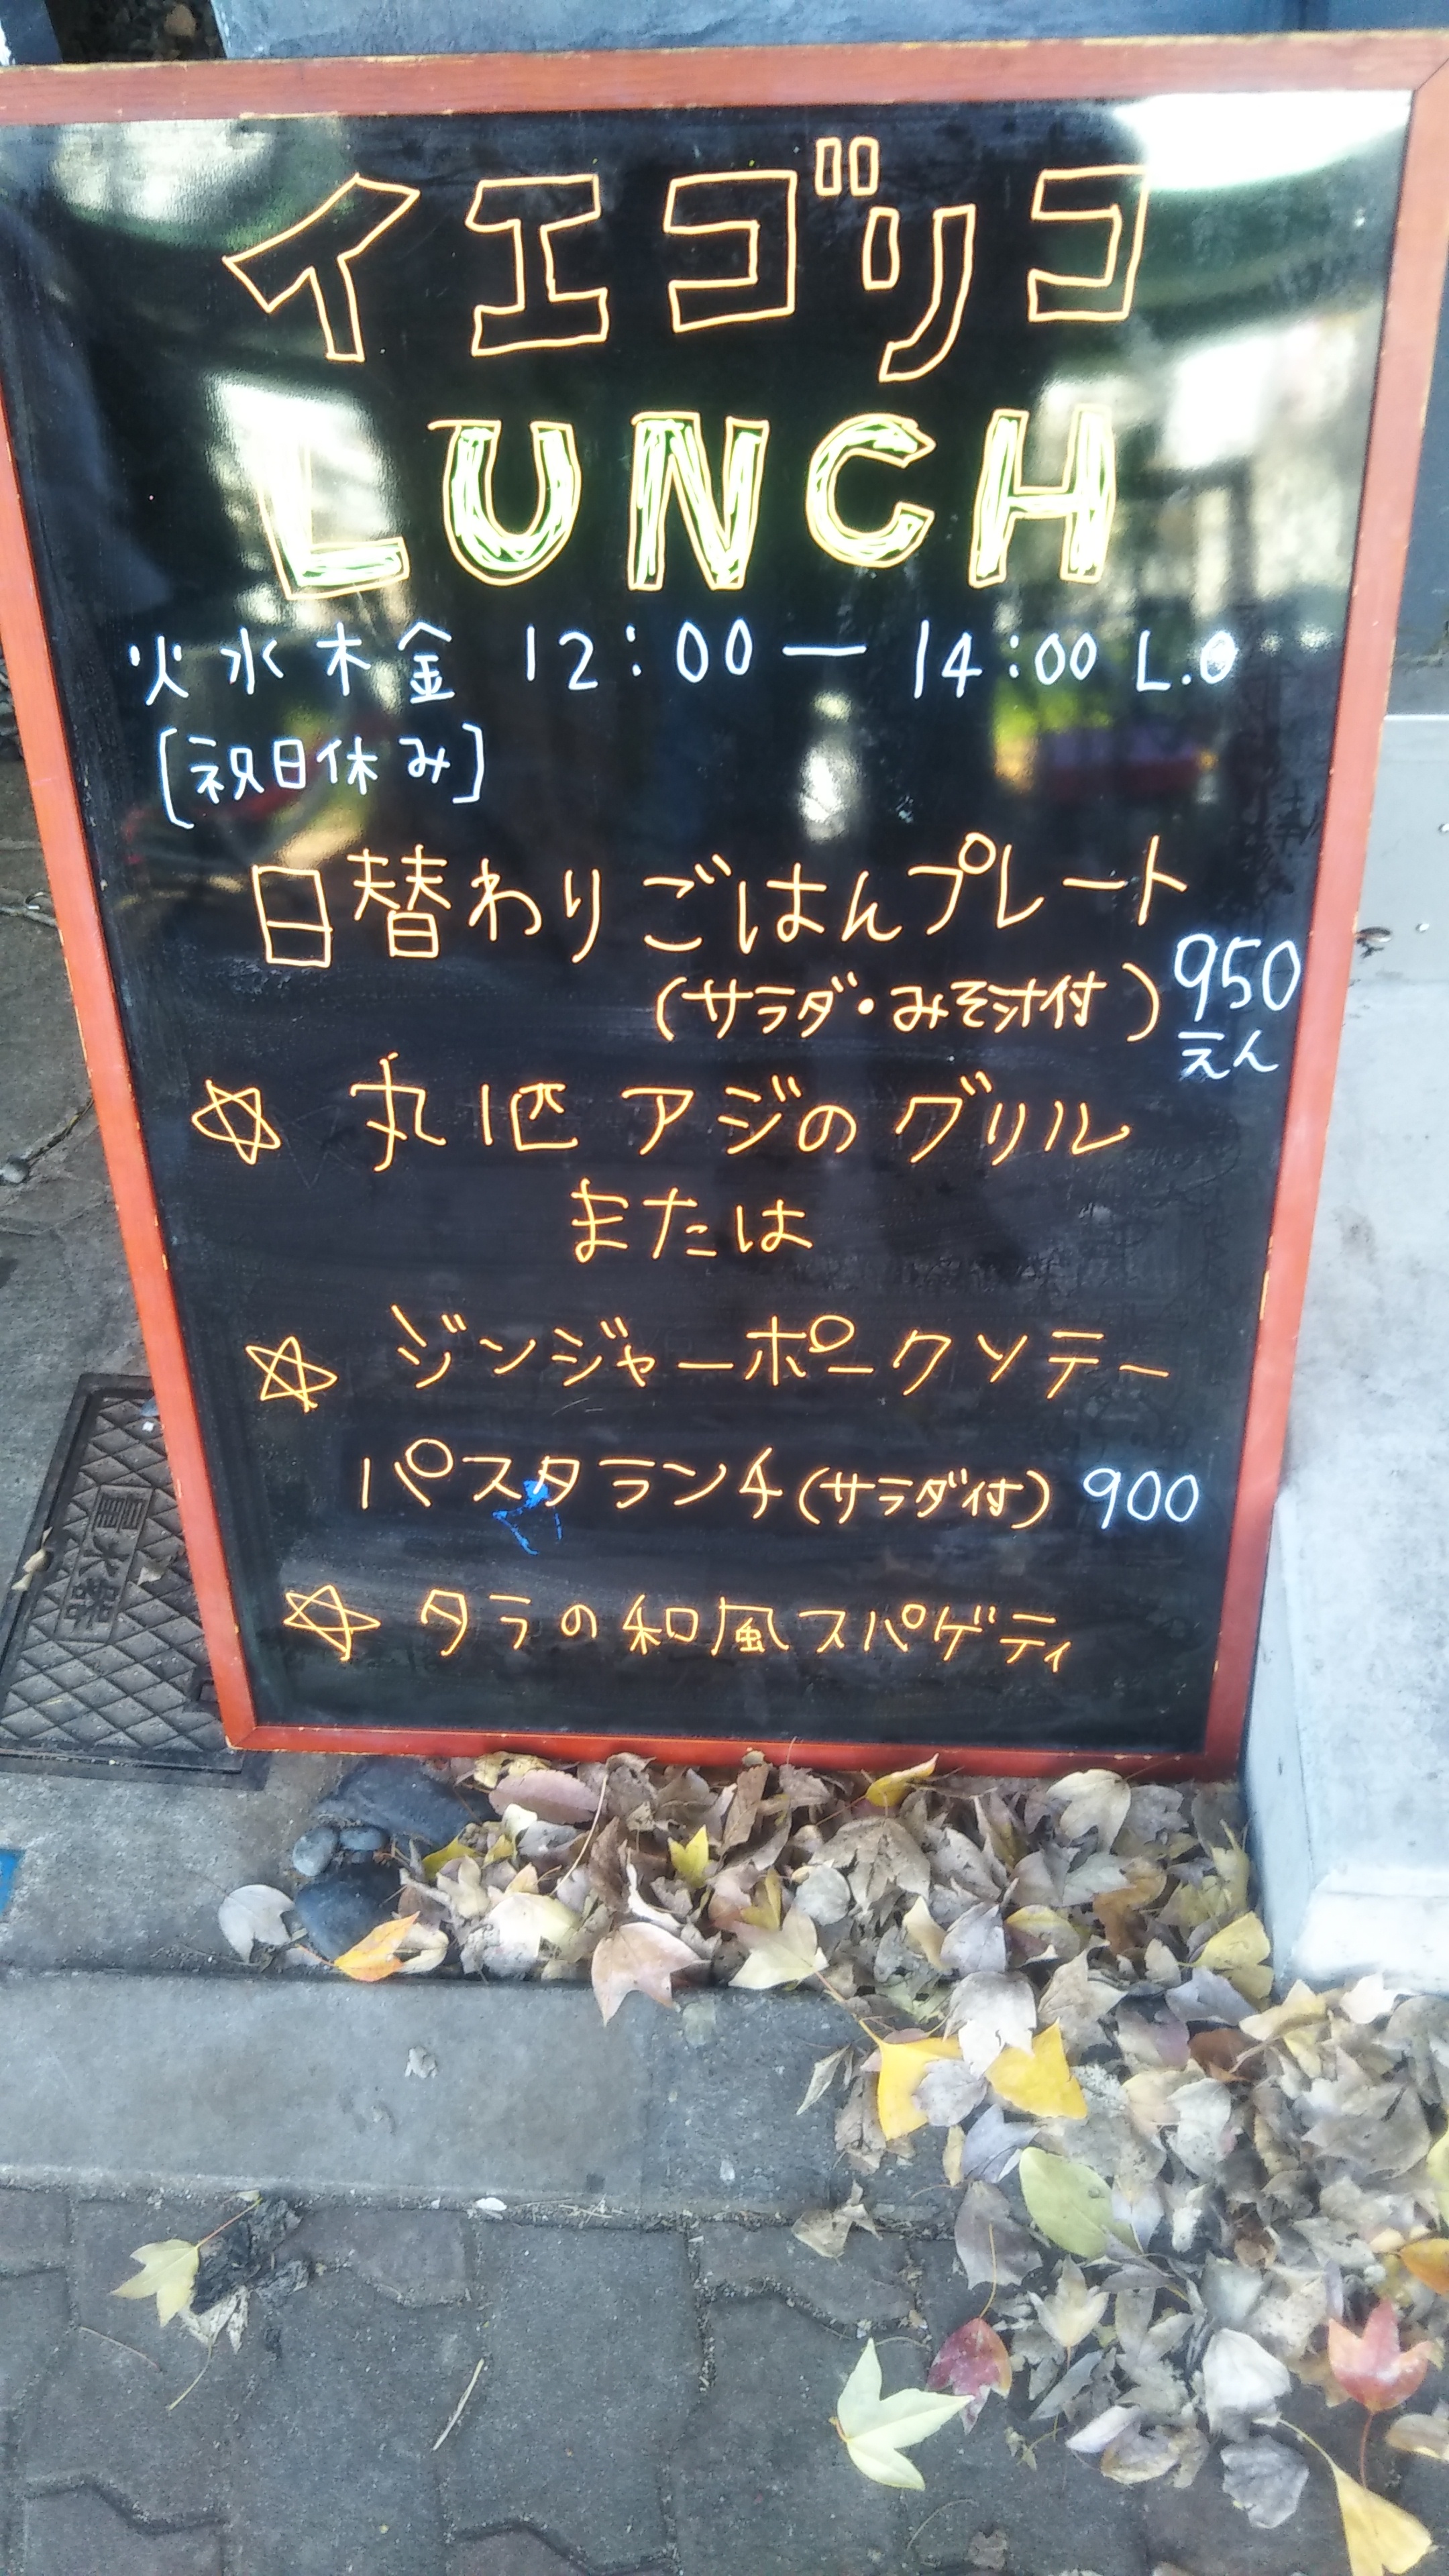 イエゴリコ
LUNCH
火水木金 12:00 — 14:00 L.O
[祝日休み]
日替わりごはんプレート
(サラダ・みそ汁付) 950えん
☆ 丸1匹 アジのグリル
または
☆ ジンジャーポークソテー
パスタランチ(サラダ付) 900
☆ タラの和風スパゲティ
量水器